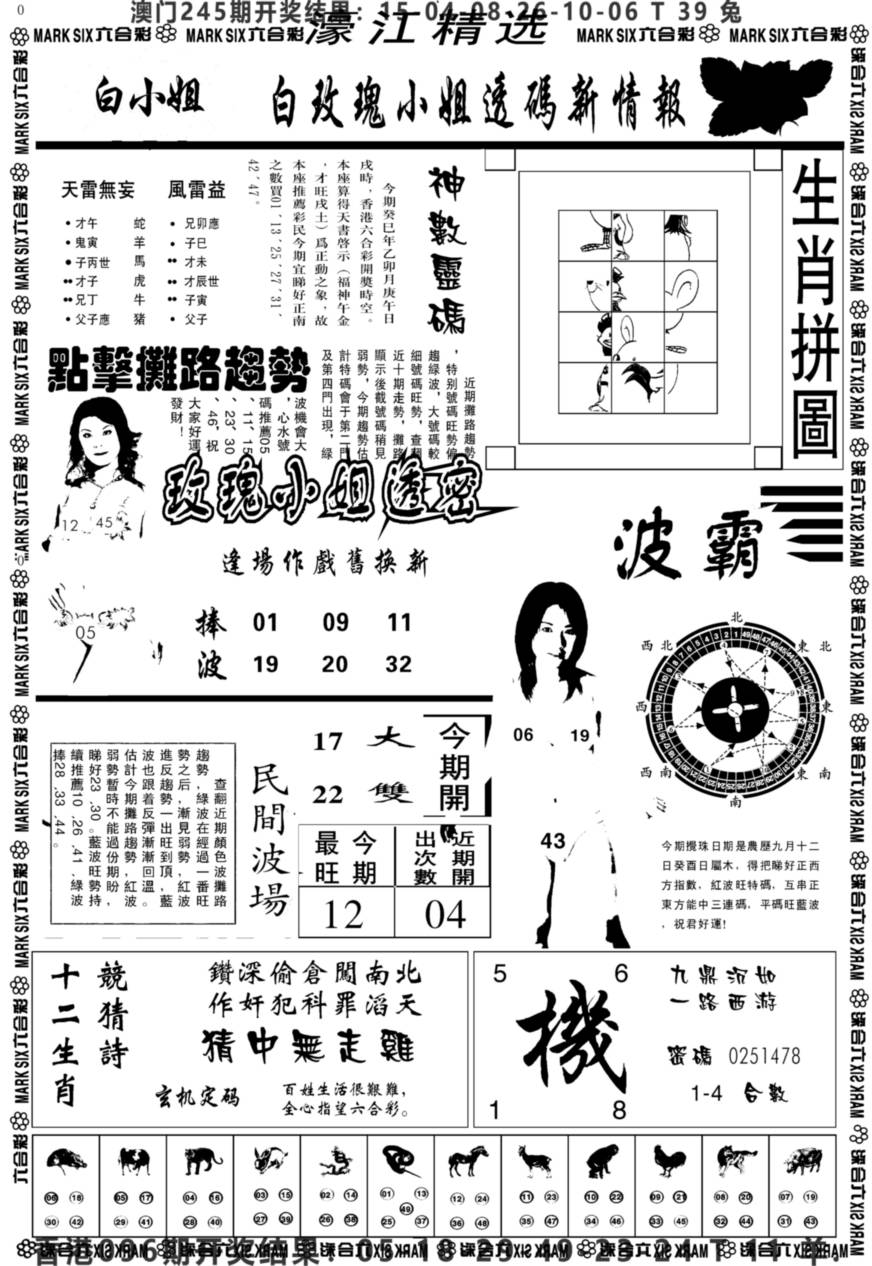 澳门245期开奖结果：15-04-08-26-10-06 T 39 兔
MARK SIX六合彩 MARK SIX六合彩 濠江精选 MARK SIX六合彩 MARK SIX六合彩
白小姐 白玫瑰小姐透碼新情報
天雷無妄 風雷益
才午 蛇 兄卯應
鬼寅 羊 子巳
子丙世 馬 才未
才子 虎 才辰世
兄丁 牛 子寅
父子應 猪 父子
神數靈碼
今期癸巳年乙卯月庚午日
戌時，香港六合彩開獎時空。
本座算得天書啓示（福神午金
，才旺戌土）爲正動之象，故
本座推薦彩民今期宜睇好正南
之數買01、13、25、27、31、
42、47。
生肖拼圖
點擊攤路趨勢
近期攤路趨勢
，特别號碼旺勢偏
趨綠波，大號碼較
細號碼旺勢，查翻
近十期走勢，攤路
顯示後截號碼稍見
弱勢，今期趨勢估
計特碼會于第二門
及第四門出現，綠
波機會大
，心水號
碼推薦05
、11、15
、23、30
、46，祝
大家好運
發財！
12 45
05
玫瑰小姐透密
逢場作戲舊換新
捧 01 09 11
波 19 20 32
波霸
06 19
43
北
西北 東北
西 東
西南 東南
南
今期攪珠日期是農歷九月十二
日癸酉日屬木，得把睇好正西
方指數，紅波旺特碼，互串正
東方能中三連碼，平碼旺藍波
，祝君好運!
查翻近期顏色攤路
趨勢，綠波在經過一番旺
勢之后，漸見弱勢，紅波
進反趨勢一出旺到頂，藍
波也跟着反彈漸漸回溫。
估計今期攤路趨勢紅波
弱勢暫時不能過份期盼，
睇好23、30。藍波旺勢持
續推薦10、26、41，綠波
捧28、33、44。
民間波場
17 大 今期開
22 雙
最旺 今期 出次數 近期開
12 04
十二生肖
競猜詩
鑽深偷倉闖南北
作奸犯科罪滔天
猜中無走雞
玄机定码
百姓生活很艱難，
全心指望六合彩。
5 6
機
1 8
九鼎沉如
一路西游
密碼 0251478
1-4 合數
06 18 05 17 04 16 03 15 02 14 01 13 12 24 11 23 10 22 09 21 08 20 07 19
49
30 42 29 41 28 40 27 39 26 38 25 37 36 48 35 47 34 46 33 45 32 44 31 43
香港006期开奖结果：05-18-29-49-23-24 T 11 羊